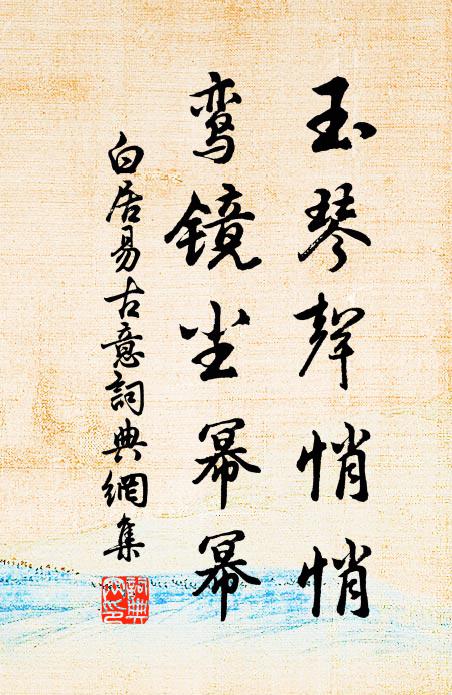 玉琴聲悄悄
鸾镜尘幂幂
白居易古意詞典網集